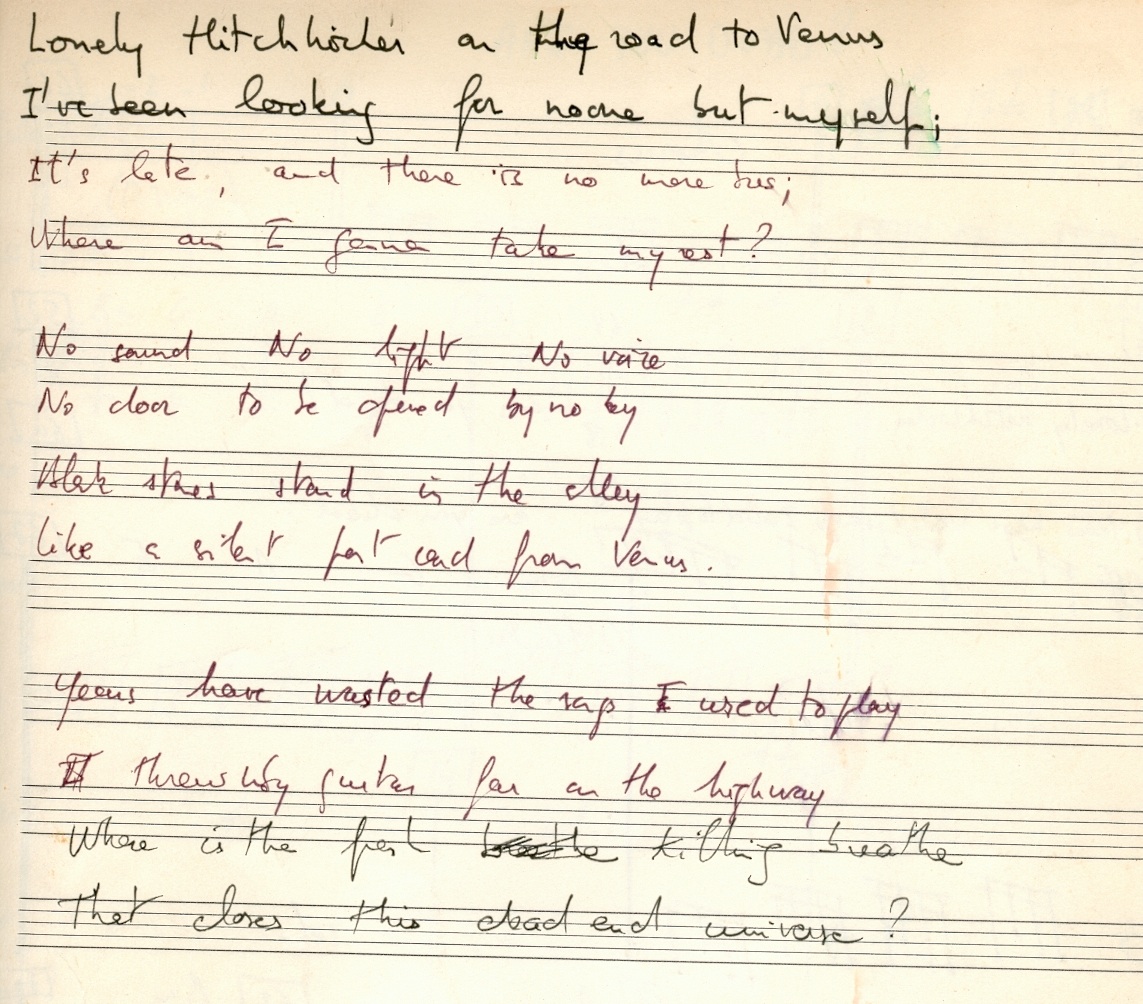 Lonely Hitchhicker on the road to Venus
I've been looking for noone but myself;
It's late, and there is no more bus;
Where am I gonna take my rest?
No sound No light No voice
No door to be opened by no key
stand in the alley
Like a silent post card from Venus.
Years have wasted the rap I used to play
I threw my guitar far on the highway
Where is the killing breathe
That closes this dead end universe?